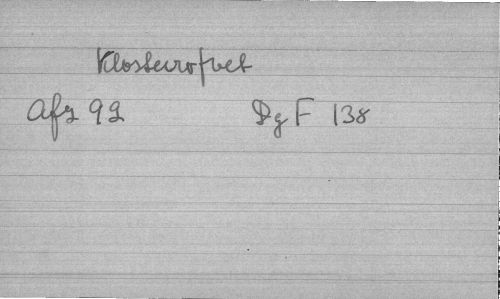 Klosterrofvet
Afz 92 DgF 138